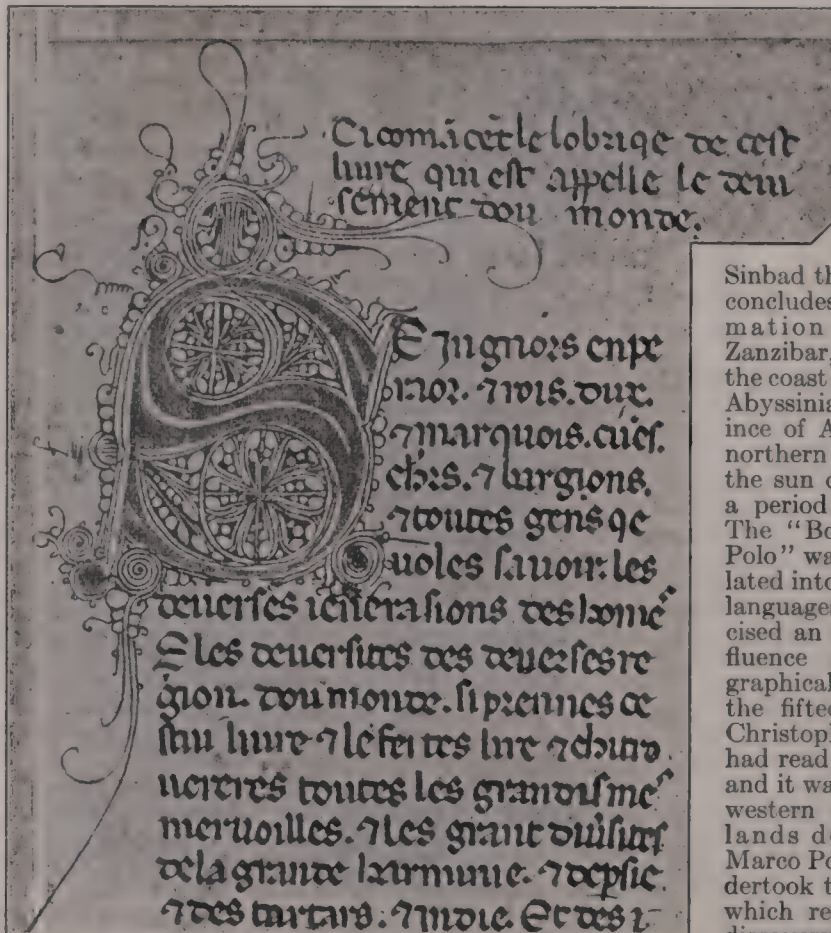 Ci comācet le lobriqe de cest
liure qui est appelle le deui
sement dou monde.
SEIngnors enpe
raor. ⁊ rois. dux.
⁊ marquois. cuēs.
⁊ burgions.
⁊ toutes gens qe
uoles sauoir. les
deuerses ienerasions des home
E les deuersites des deuerses re
gion. dou monde. si prennes ce
stui liure ⁊ le feites lire ⁊ chi tro
uereres toutes les grandisme
meruoilles. ⁊ les grant
de la grande harminie. ⁊ de psie.
⁊ des tartars. ⁊ indie. Et des i
Sinbad th
concludes
mation
Zanzibar,
the coast
Abyssinia
ince of A
northern
the sun c
a period
The “Bo
Polo” wa
lated into
language
cised an
fluence
graphical
the fiftee
Christoph
had read
and it wa
western
lands de
Marco Po
dertook t
which re